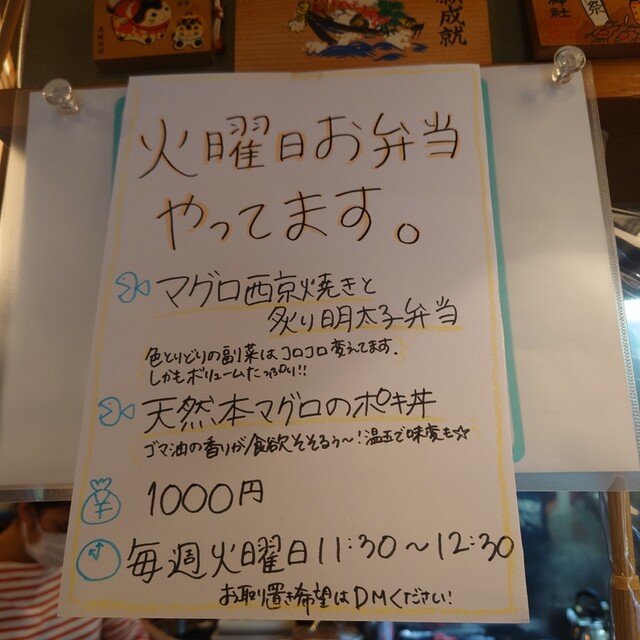 成就
火曜日お弁当
やってます。
マグロ西京焼きと
炙り明太子弁当
色とりどりの副菜はコロコロ変えてます。
しかもボリュームたっぷり!!
天然本マグロのポキ丼
ゴマ油の香りが食欲そそるぅ〜!温玉で味変も☆
¥
1000円
毎週火曜日11:30〜12:30
お取り置き希望はDMください!